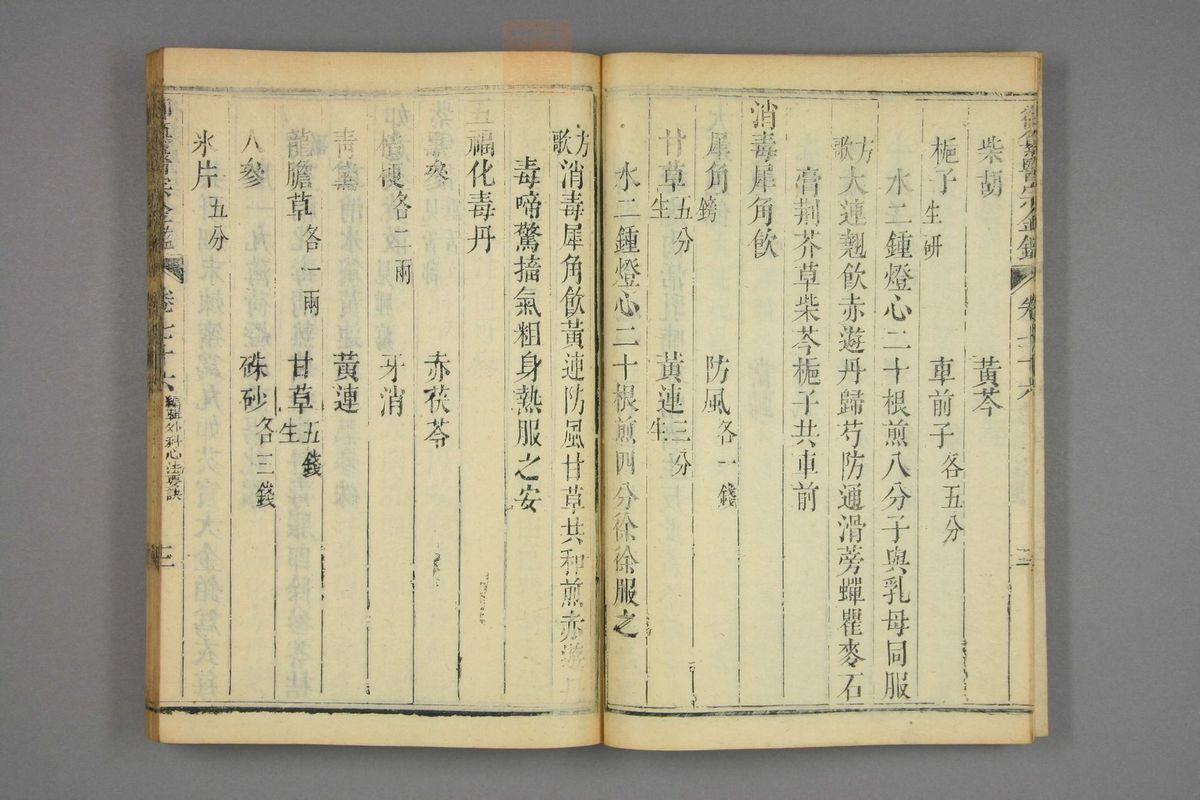 柴胡 黃芩
梔子生研 車前子各五分
水二鍾燈心二十根煎八分子與乳母同服
方歌 大連翹飲赤遊丹歸芍防通滑蒡蟬瞿麥石
膏荊芥草柴芩梔子共車前
消毒犀角飲
犀角鎊 防風各一錢
甘草五分生 黃連三分生
水二鍾燈心二十根煎四分徐徐服之
方歌 消毒犀角飲黃連防風甘草共和煎赤遊
毒啼驚搐氣粗身熱服之安
五福化毒丹
參 赤茯苓
桔梗各二兩 牙消
青黛 黃連
龍膽草各一兩 甘草五錢生
人參 硃砂各三錢
氷片五分
醫宗金鑑 卷七十六 編輯外科心法要訣